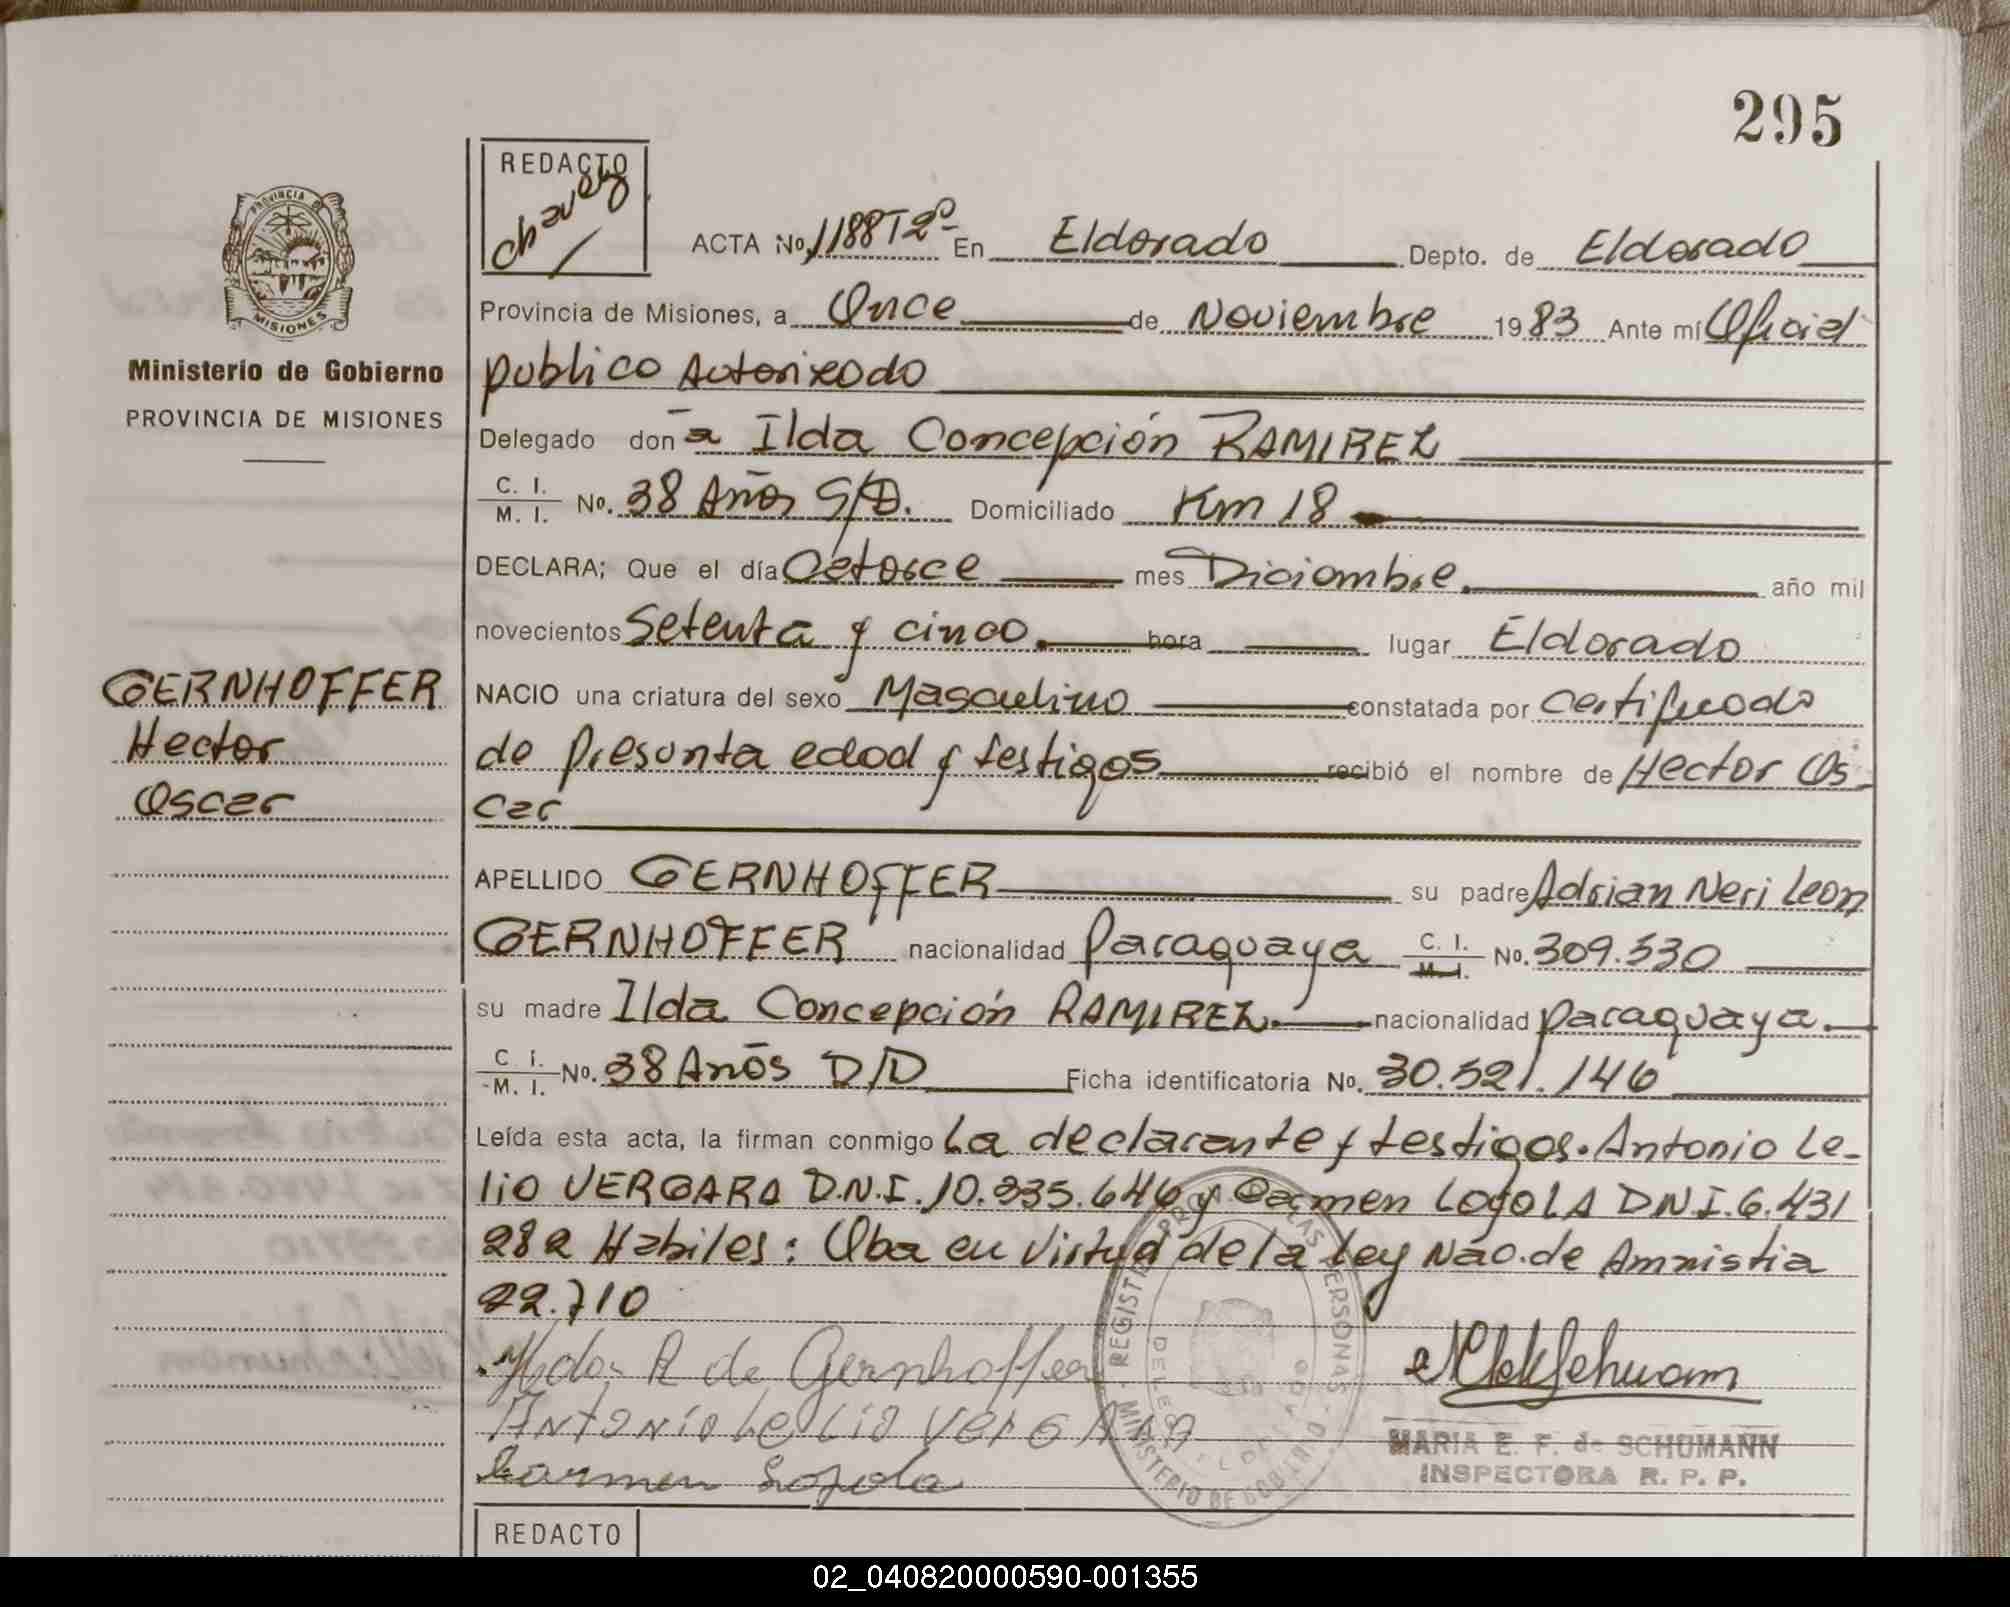 295
REDACTO
Chavez
PROVINCIA D
MISIONES
Ministerio de Gobierno
PROVINCIA DE MISIONES
ACTA No. 1188 T 2º En Eldorado Depto. de Eldorado
Provincia de Misiones, a Once de Noviembre 1983 Ante mí Oficial
publico Autorizado
Delegado don a Ilda Concepción RAMIREZ
C. I. M. I. No. 38 Años S/D. Domiciliado Km 18
DECLARA; Que el día Catorce mes Diciembre. año mil
novecientos Setenta y cinco. hora lugar Eldorado
GERNHOFFER
Hector
Oscar
NACIO una criatura del sexo Masculino constatada por Certificado
de Presunta edad y testigos recibió el nombre de Hector Os
car
APELLIDO GERNHOFFER su padre Adrian Neri Leon
GERNHOFFER nacionalidad Paraguaya C. I. M. I. No. 309.530
su madre Ilda Concepción RAMIREZ. nacionalidad paraguaya.
C. I. M. I. No. 38 Años D/D Ficha identificatoria No. 30.521.146
Leída esta acta, la firman conmigo La declarante y testigos. Antonio Le-
lio VERGARA D.N.I. 10.335.646 y Carmen LOYOLA DNI. 6.431
282 Habiles: Oba en Virtud de la Ley Nac. de Amnistia
22.710
Ilda R de Gernhoffer
Antonio Lelio Vergara
Carmen Loyola
MINISTERIO DE GOBIERNO
MARIA E. F. de SCHUMANN
INSPECTORA R. P. P.
REDACTO
02_040820000590-001355